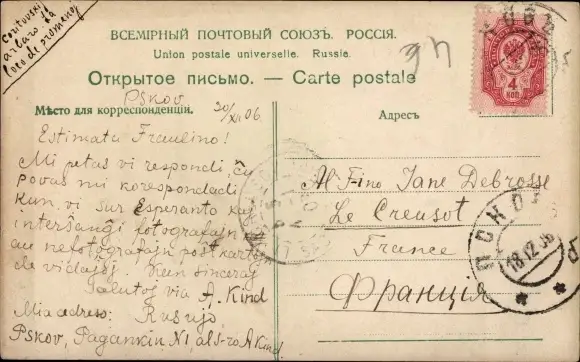 arbaro da
loco de promenoj
ВСЕМІРНЫЙ ПОЧТОВЫЙ СОЮЗЪ. РОССІЯ.
Union postale universelle. Russie.
Открытое письмо. — Carte postale
Мѣсто для корреспонденціи.
Адресъ
Pskov
Estimata Fraulino!
Mi petas vi respondi, ĉu
povas mi korespondadi
kun vi sur Esperanto kaj
interŝanĝi fotografajn
au nefotografajn poŝtkartojn
de vidajoj. Kun sinceraj
Salutoj via A. Kind
Mia adreso: Rusujo
Pskov, Pagankin N1, al s-ro A Kind
Al F-ino Jane Debrosse
Le Creusot
France
Франція
4
КОП
ПСКОВ
18.12.06